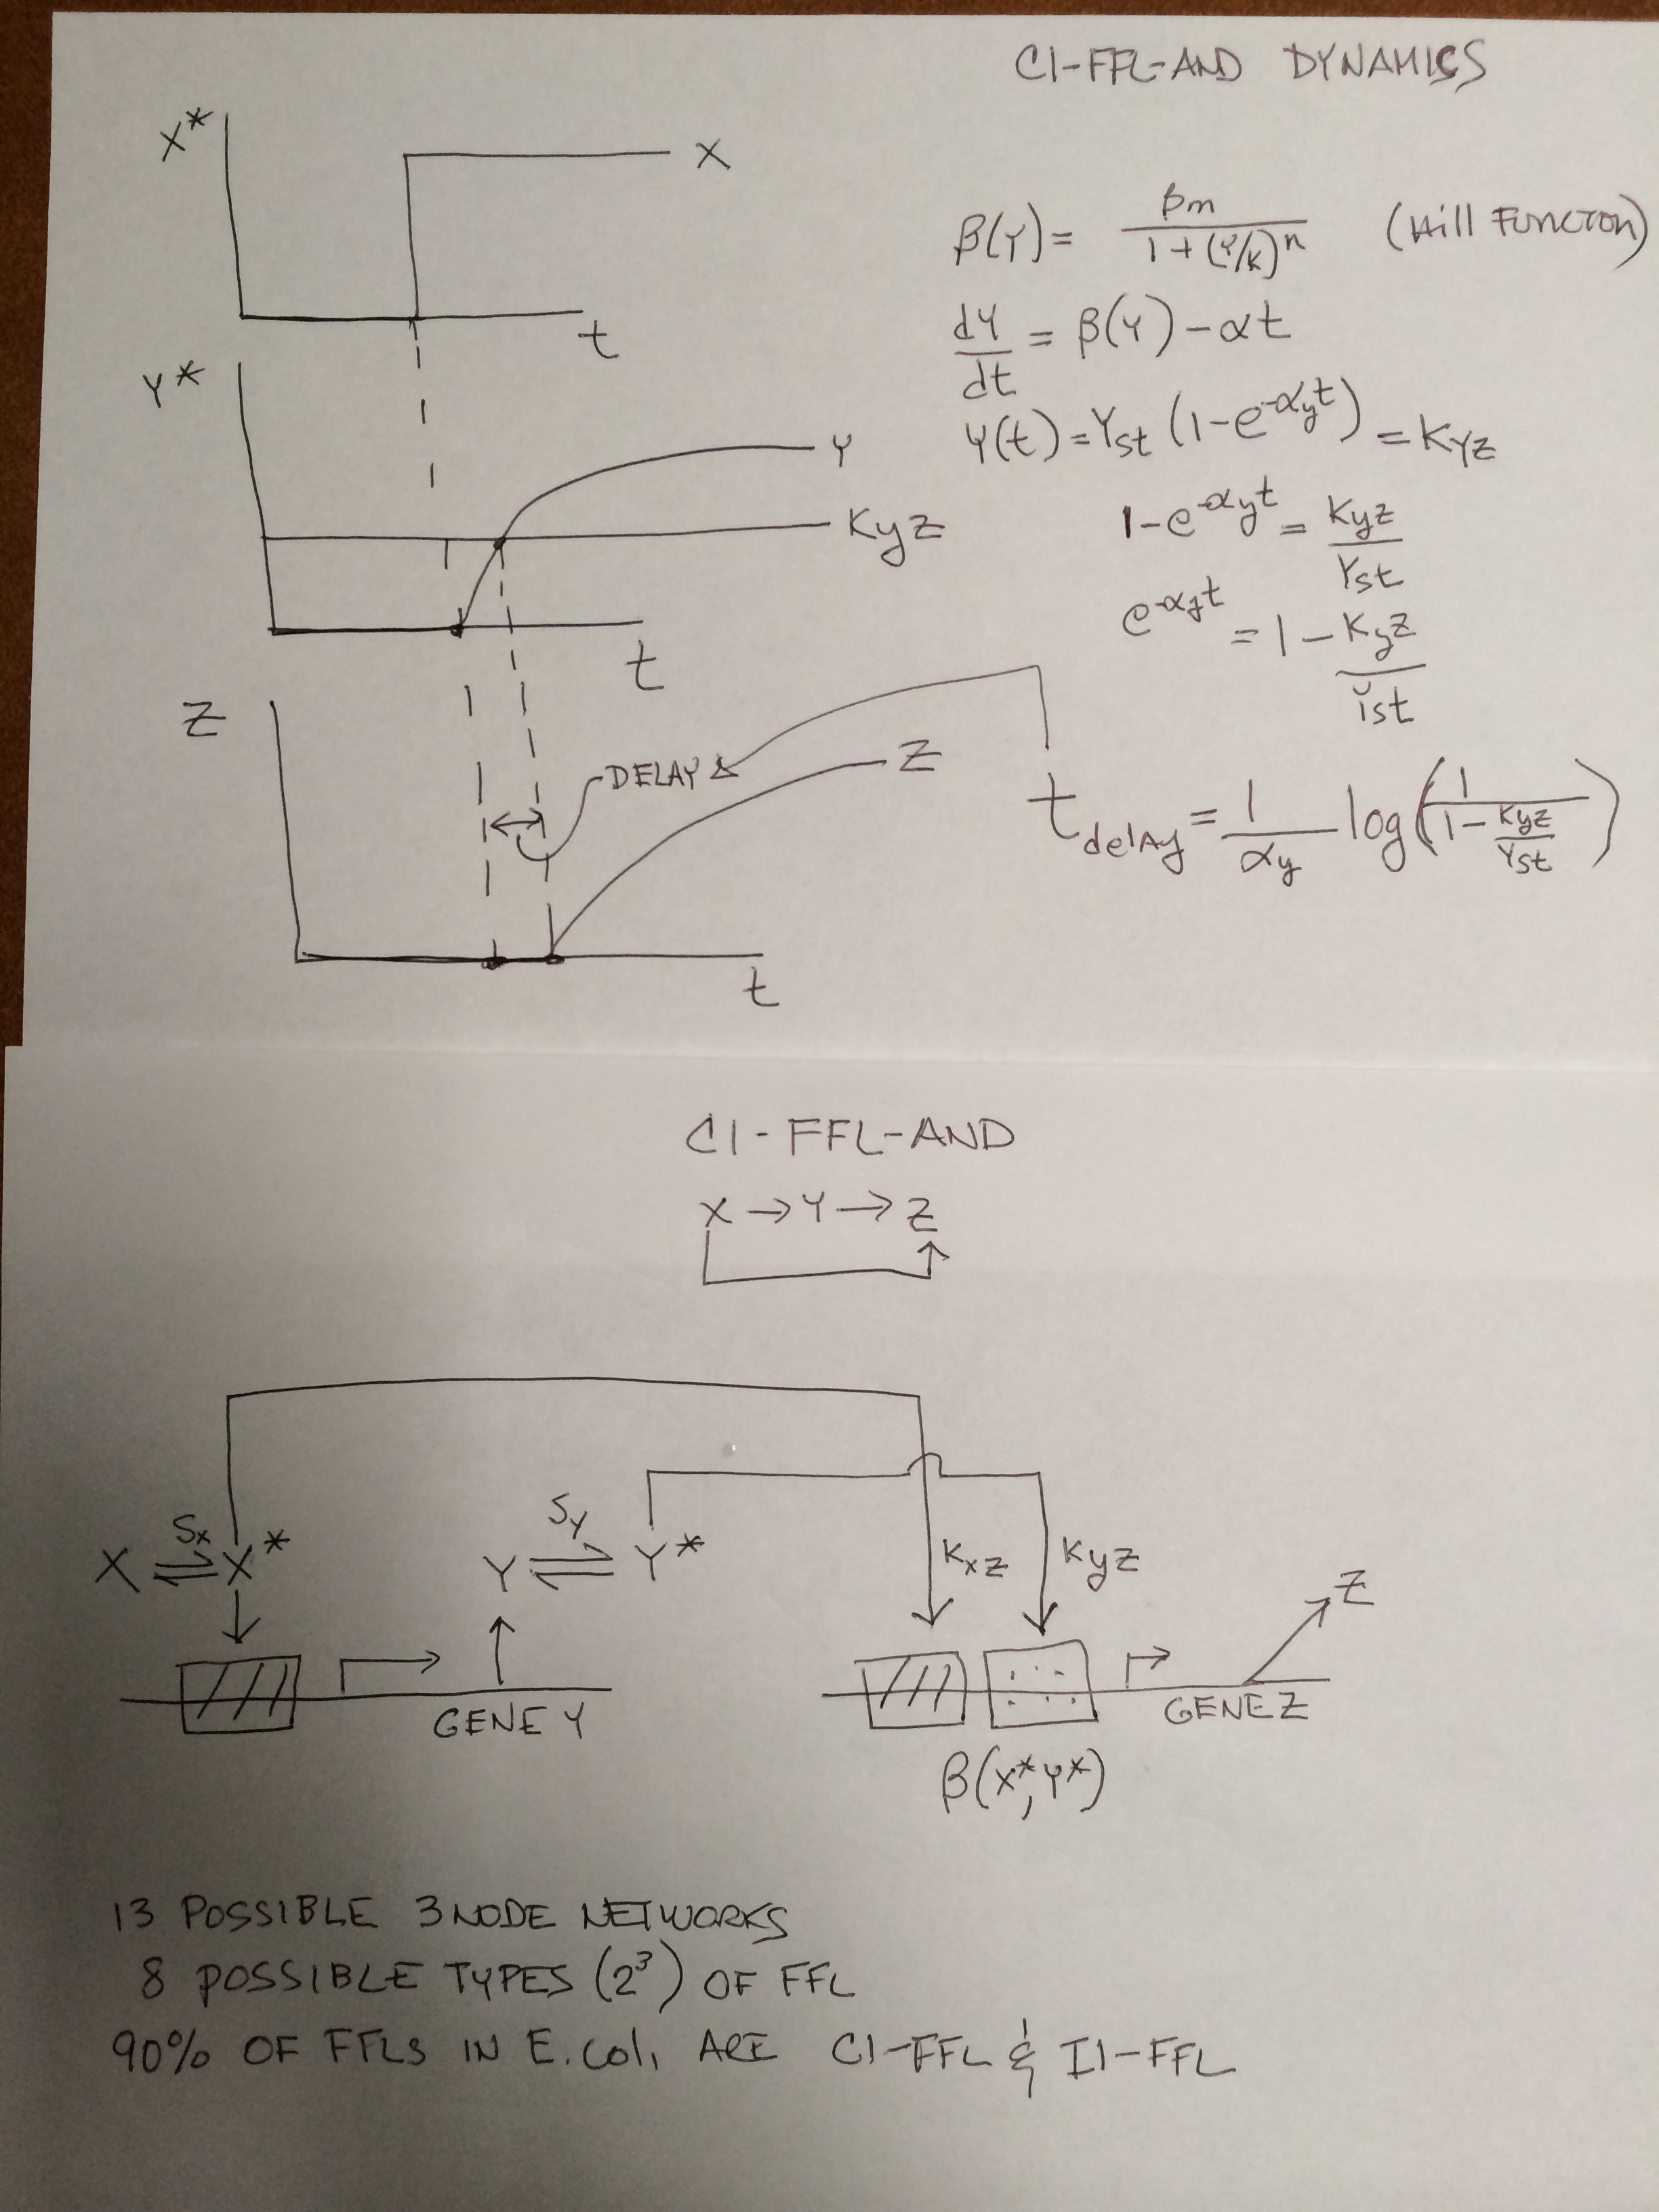 C1-FFL-AND DYNAMICS
X*
X
t
β(Y) = βm / 1+(Y/K)^n (Hill Function)
dY/dt = β(Y) - αt
Y*
Y
Kyz
t
Y(t) = Yst (1-e^-αyt) = KYZ
1-e^-αyt = Kyz / Yst
e^-αyt = 1 - Kyz / Yst
Z
DELAY
Z
t
t delay = 1/αy log(1 / 1 - Kyz/Yst)
C1-FFL-AND
X → Y → Z
X ⇌ X*
Sx
Y ⇌ Y*
SY
Kxz
Kyz
Z
GENE Y
GENE Z
β(X*, Y*)
13 POSSIBLE 3 NODE NETWORKS
8 POSSIBLE TYPES (2³) OF FFL
90% OF FFLS IN E. Coli ARE C1-FFL & I1-FFL